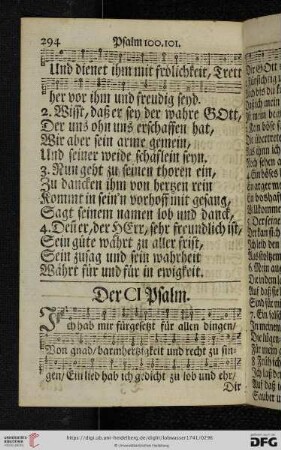 294 Psalm 100.101.
Und dienet ihm mit frölichkeit, Trett
her vor ihm und freudig seyd.
2. Wisst, daß er sey der wahre GOtt,
Der uns ohn uns erschaffen hat,
Wir aber sein arme gemein,
Und seiner weide schäflein seyn.
3. Nun geht zu seinen thoren ein,
Zu dancken ihm von hertzen rein
Kommt in sein'n vorhoff mit gesang,
Sagt seinem namen lob und danck.
4. Deñ er, der HErr, sehr freundlich ist,
Sein güte währt zu aller frist,
Sein zusag und sein wahrheit
Währt für und für in ewigkeit.
Der CI Psalm.
Ich hab mir fürgesetzt für allen dingen/
Von gnad/ barmhertzigkeit und recht zu sin-
gen/ Ein lied hab ich gedicht zu lob und ehr/
Dir
http://digi.ub.uni-heidelberg.de/diglit/lobwasser1741/0296
© Universitätsbibliothek Heidelberg
gefördert durch die
DFG